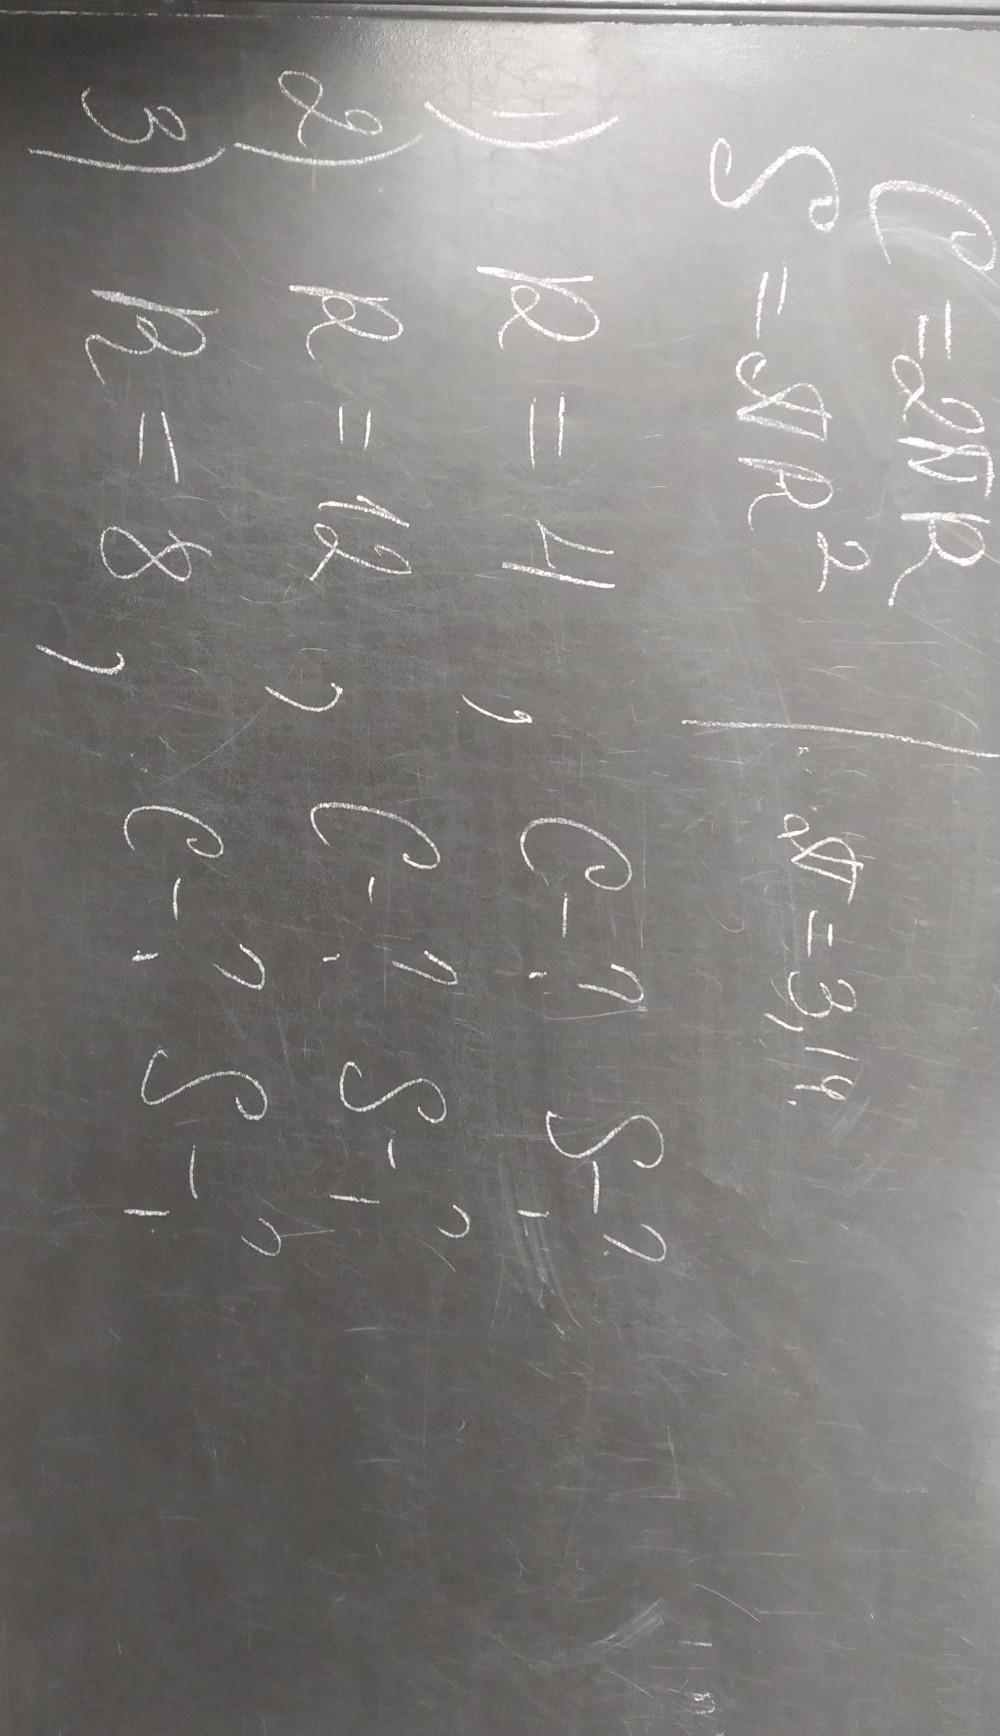 C = 2πR
S = πR² | π = 3,14.
1) R = 4, C - ? S - ?
2) R = 12, C - ? S - ?
3) R = 8, C - ? S - ?